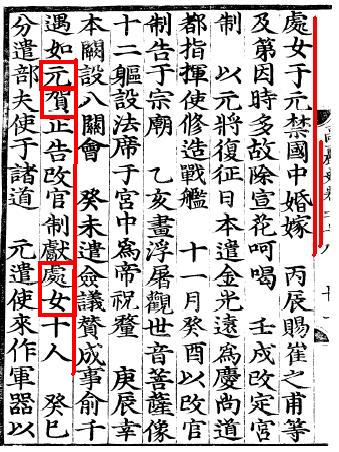 處女于元禁國中婚嫁　丙辰賜崔之甫等
及第因時多故除宣花呵喝　壬戌改定官
制　以元將復征日本遣金光遠爲慶尙道
都指揮使修造戰艦　十一月癸酉以改官
制告于宗廟　乙亥畫浮屠觀世音菩薩像
十二軀設法席于宮中爲帝祝釐　庚辰幸
本闕設八關會　癸未遣僉議贊成事俞千
遇如元賀正告改官制獻處女十人　癸巳
分遣部夫使于諸道　元遣使來作軍器以